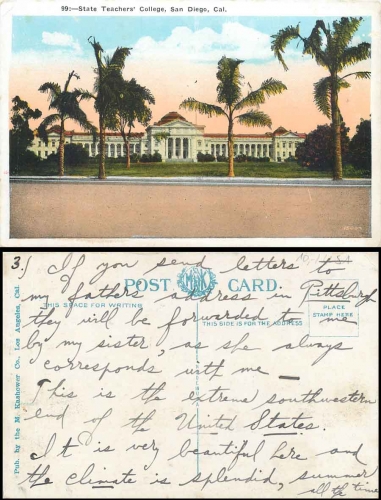 99:—State Teachers' College, San Diego, Cal.
3.) If you send letters to
my fathers address in Pittsburgh
they will be forwarded to me
by my sister, as she always
corresponds with me —
This is the extreme southwestern
end of the United States.
It is very beautiful here and
the climate is splendid, summer
all the time
POST CARD.
THIS SPACE FOR WRITING
THIS SIDE IS FOR THE ADDRESS
PLACE
STAMP HERE
Pub. by the M. Kashower Co., Los Angeles, Cal.